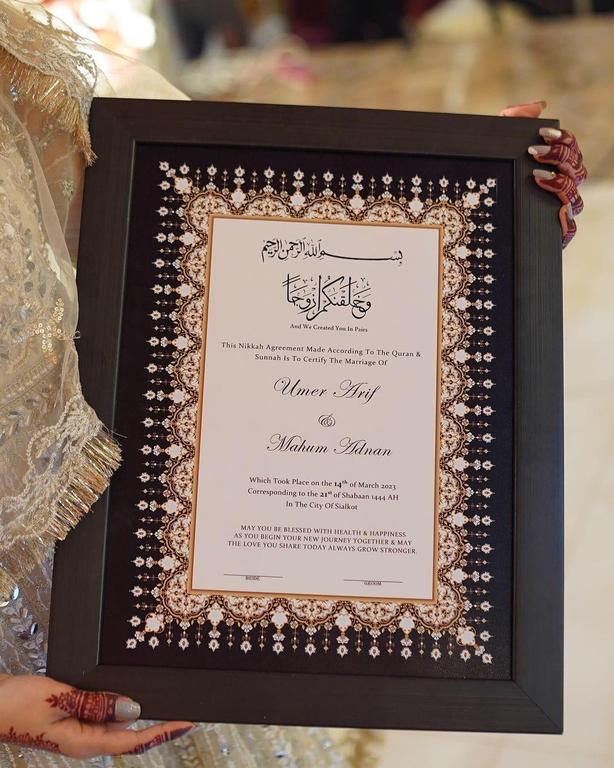 بسم الله الرحمن الرحيم
وخلقنكم ازواجا
And We Created You In Pairs
This Nikkah Agreement Made According To The Quran &
Sunnah Is To Certify The Marriage Of
Umer Arif
&
Mahum Adnan
Which Took Place on the 14th of March 2023
Corresponding to the 21st of Shabaan 1444 AH
In The City Of Sialkot
MAY YOU BE BLESSED WITH HEALTH & HAPPINESS
AS YOU BEGIN YOUR NEW JOURNEY TOGETHER & MAY
THE LOVE YOU SHARE TODAY ALWAYS GROW STRONGER.
BRIDE GROOM